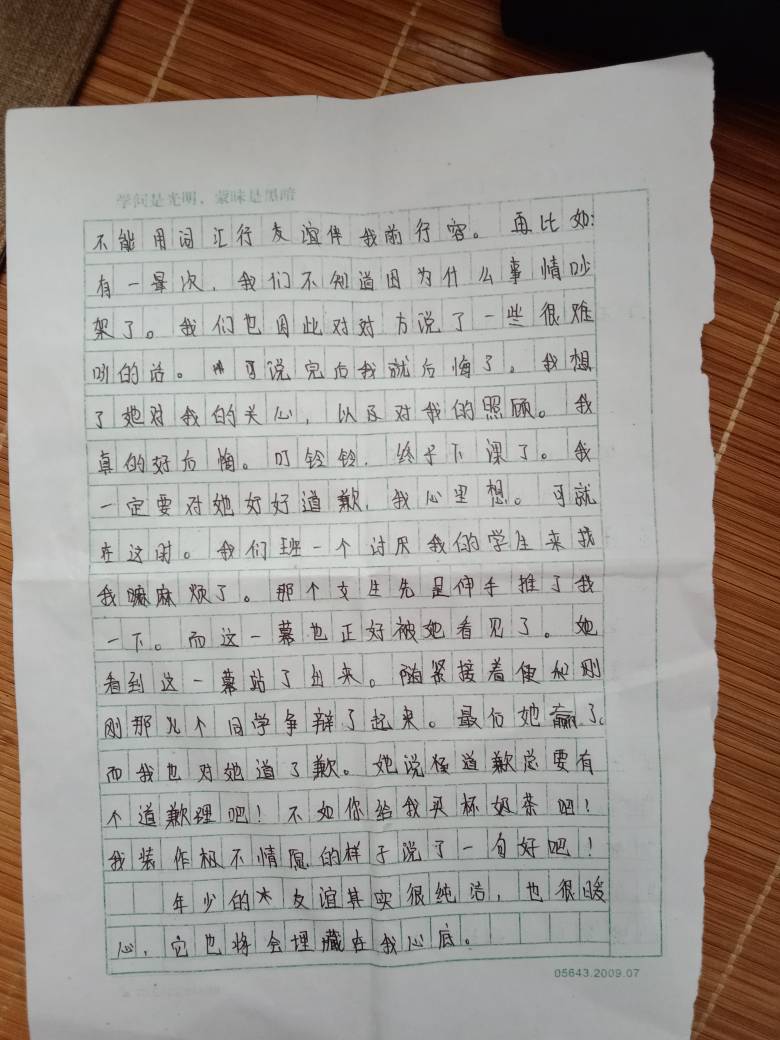 学问是光明，蒙昧是黑暗
不能用词汇行友谊伴我前行容。再比如：
有一晕次，我们不知道因为什么事情吵
架了。我们也因此对对方说了一些很难
听的话。可说完后我就后悔了。我想
了她对我的关心，以及对我的照顾。我
真的好后悔。叮铃铃，终于下课了。我
一定要对她好好道歉，我心里想。可就
在这时。我们班一个讨厌我们的学生来找
我嘛麻烦了。那个女生先是伸手推了我
一下。而这一幕也正好被她看见了。她
看到这一幕站了出来。随紧接着便和刚
刚那几个同学争辩了起来。最后她赢了。
而我也对她道了歉。她说道歉总要有
个道歉理吧！不如你给我买杯奶茶吧！
我装作极不情愿的样子说了一句好吧！
年少的友谊其实很纯洁，也很暖
心，它也将会埋藏在我心底。
05643.2009.07